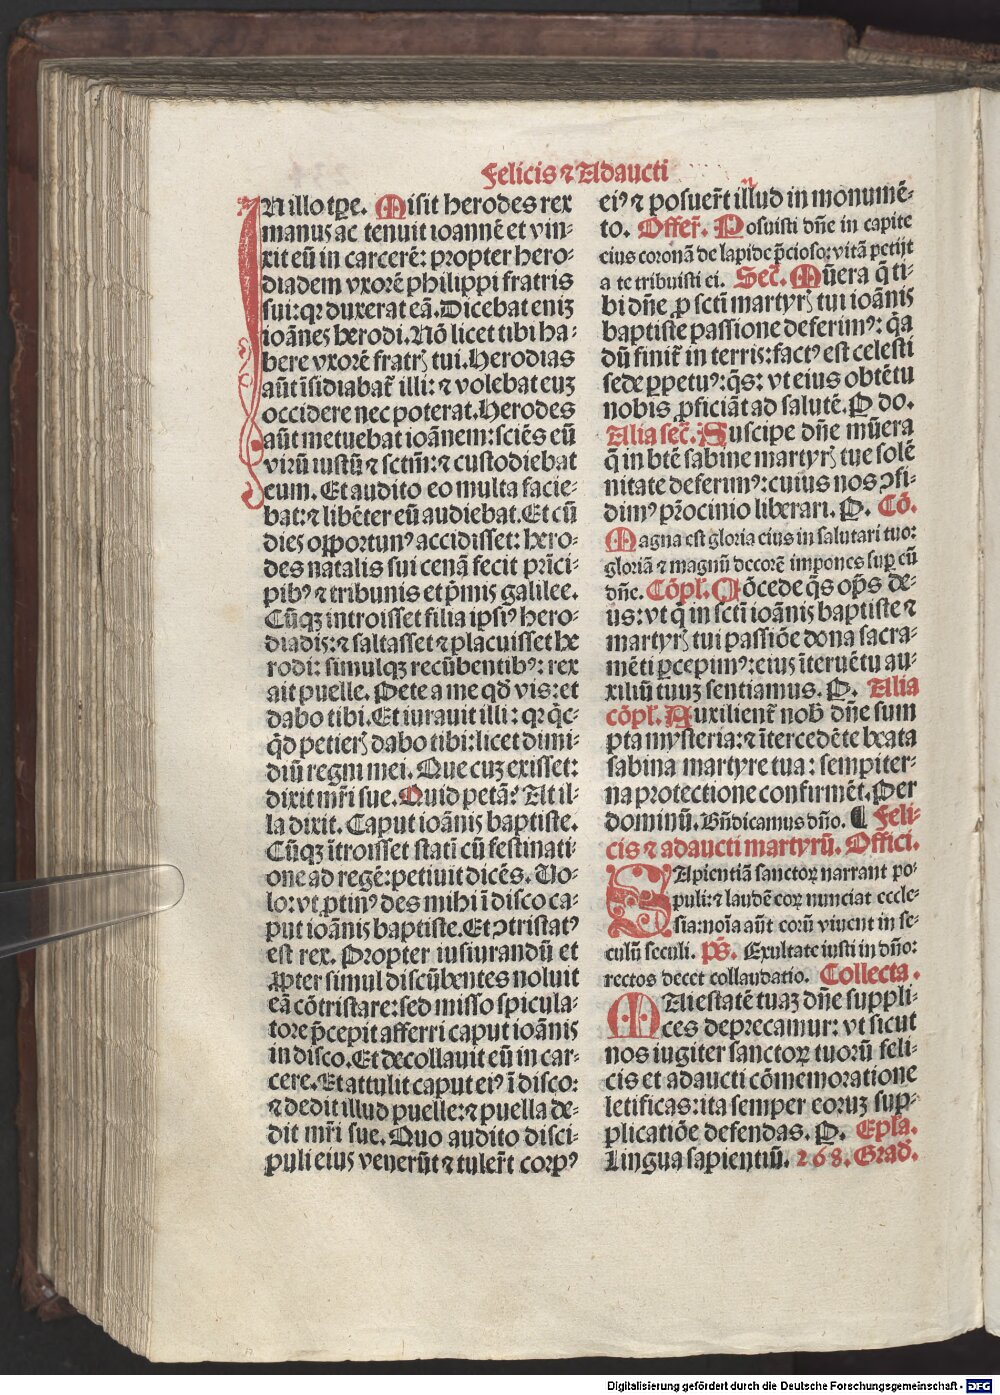 Felicis ⁊ Adaucti
IN illo tp̄e. Misit herodes rex
manus ac tenuit ioannē et vin-
xit eū in carcerē: propter hero-
diadem vxorē philippi fratris
sui: qꝛ duxerat eā. Dicebat enīz
ioānes herodi. Nō licet tibi ha-
bere vxorē fratrꝭ tui. Herodias
aūt īsidiabat᷑ illi: ⁊ volebat euꝫ
occidere nec poterat. Herodes
aūt metuebat ioānem: sciēs eū
virū iustū ⁊ sctm̄: ⁊ custodiebat
eum. Et audito eo multa facie-
bat: ⁊ libēter eū audiebat. Et cū
dies oportunꝰ accidisset: hero-
des natalis sui cenā fecit prīci-
pibꝰ ⁊ tribunis et p̄mis galilee.
Cūqꝫ introisset filia ipsiꝰ hero-
diadis: ⁊ saltasset ⁊ placuisset he
rodi: simulqꝫ recūbentibꝰ: rex
ait puelle. Pete a me qd̄ vis: et
dabo tibi. Et iurauit illi: qꝛ q̇c-
q̇d petierꝭ dabo tibi: licet dimi-
diū regni mei. Que cuꝫ exisset:
dixit mr̄i sue. Quid petā? At il-
la dixit. Caput ioānis baptiste.
Cūqꝫ ītroisset statī cū festinati-
one ad regē: petiuit dicēs. Uo-
lo: vt ꝓtinꝰ des mihi ī disco ca-
put ioānis baptiste. Et ꝯtristatꝰ
est rex. Propter iusiurandū et
ꝓpter simul discūbentes noluit
eā cōtristare: sed misso spicula-
tore p̄cepit afferri caput ioānis
in disco. Et decollauit eū in car-
cere. Et attulit caput eiꝰ ī disco:
⁊ dedit illud puelle: ⁊ puella de-
dit mr̄i sue. Quo audito disci-
puli eius venerūt ⁊ tuler̄t corpꝰ
eiꝰ ⁊ posuer̄t illud in monumē-
to. Offer̄. Posuisti dn̄e in capite
eius coronā de lapide p̄cioso: vitā petijt
a te tribuisti ei. Secꝭ. Mūera q̄ ti-
bi dn̄e ꝓ scti martyrꝭ tui ioānis
baptiste passione deferimꝰ: q̇a
dū finit᷑ in terris: factꝰ est celesti
sede ꝑpetuꝰ: q̄s: vt eius obtētu
nobis ꝓficiāt ad salutē. P do.
Alia secꝭ. Suscipe dn̄e mūera
q̄ in btē sabine martyrꝭ tue solē
nitate deferimꝰ: cuius nos ꝯfi-
dimꝰ pr̄ocinio liberari. P. Cō.
Magna est gloria eius in salutari tuo:
gloriā ⁊ magnū decorē impones suꝑ eū
dn̄e. Cōpl̄. Cōcede q̄s op̄s de-
us: vt q̇ in scti ioānis baptiste ⁊
martyrꝭ tui passiōe dona sacra-
mēti ꝑcepimꝰ: eius īteruētu au-
xiliū tuuꝫ sentiamus. P. Alia
cōpl̄. Auxilient᷑ nob̄ dn̄e sum
pta mysteria: ⁊ ītercedēte beata
sabina martyre tua: sempiter-
na protectione confirmēt. Per
dominū. Bn̄dicamus dn̄o. ¶ Feli-
cis ⁊ adaucti martyrū. Offici.
SApientiā sanctoꝝ narrant po-
puli: ⁊ laudē eoꝝ nunciat eccle-
sia: noīa aūt eorū viuent in se-
culū seculi. ps̄. Exultate iusti in dn̄o:
rectos decet collaudatio. Collecta.
MAiestatē tuaꝫ dn̄e suppli-
ces deprecamur: vt sicut
nos iugiter sanctoꝝ tuorū feli-
cis et adaucti cōmemoratione
letificas: ita semper eoruꝫ sup-
plicatiōe defendas. P. Epl̄a.
Lingua sapientiū. 268. Grad̄.
Digitalisierung gefördert durch die Deutsche Forschungsgemeinschaft - DFG